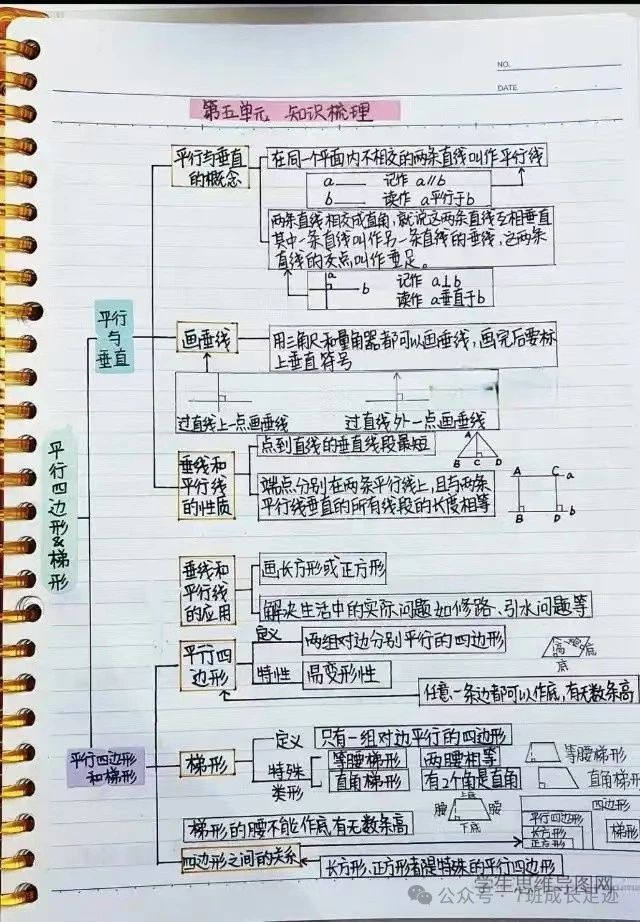 NO.
DATE
第五单元 知识梳理
平行四边形&梯形
平行
与
垂直
平行与垂直
的概念
在同一个平面内不相交的两条直线叫作平行线
a 记作 a∥b
b 读作 a平行于b
两条直线相交成直角,就说这两条直线互相垂直
其中一条直线叫作另一条直线的垂线,这两条
直线的交点叫作垂足。
a
b
记作 a⊥b
读作 a垂直于b
画垂线
用三角尺和量角器都可以画垂线,画完后要标
上垂直符号
过直线上一点画垂线
过直线外一点画垂线
垂线和
平行线
的性质
点到直线的垂直线段最短
A
B C D
端点分别在两条平行线上,且与两条
平行线垂直的所有线段的长度相等
A C a
B D b
垂线和
平行线
的应用
画长方形或正方形
解决生活中的实际问题如修路、引水问题等
平行四边形
和梯形
平行四
边形
定义
两组对边分别平行的四边形
特性
易变形性
高
底
底
任意一条边都可以作底,有无数条高
梯形
定义
只有一组对边平行的四边形
特殊
类形
等腰梯形
两腰相等
等腰梯形
直角梯形
有2个角是直角
直角梯形
上底
腰
腰
下底
梯形的腰不能作底,有无数条高
四边形
平行四边形
长方形
正方形
梯形
四边形之间的关系
长方形、正方形都是特殊的平行四边形
学生思维导图网
公众号·7班成长足迹